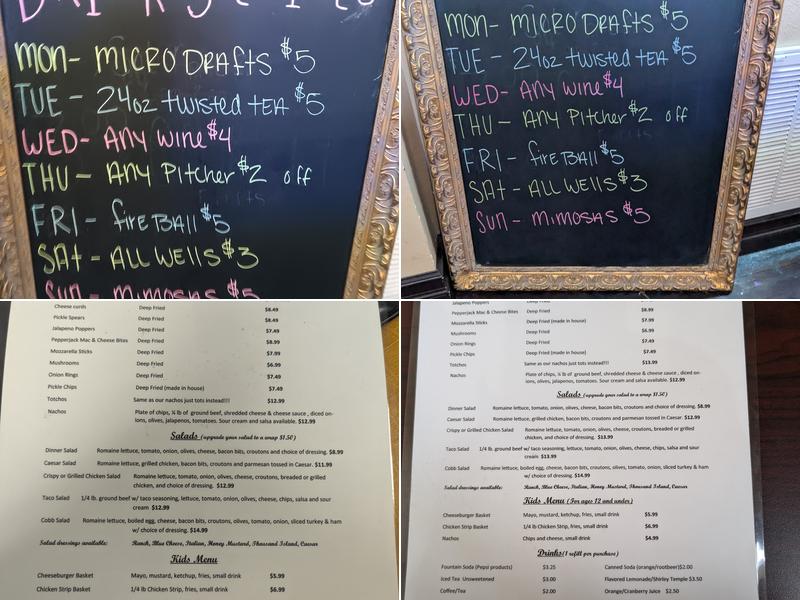 MON- MICRO DRAfts $5
TUE - 24oz twisted tEA $5
WED- Any wine $4
THU - Any Pitcher $2 off
FRI - fireBALL $5
SAt - ALL WELLS $3
SUN - mimosas $5
MON- MICRO DRAfts $5
TUE - 24oz twisted tEA $5
WED- Any wine $4
THU - Any Pitcher $2 off
FRI - fireBALL $5
SAt - ALL WELLS $3
SUN - mimosas $5
Cheese curds Deep Fried $8.49
Pickle Spears Deep Fried $8.49
Jalapeno Poppers Deep Fried $7.49
Pepperjack Mac & Cheese Bites Deep Fried $8.99
Mozzarella Sticks Deep Fried $7.99
Mushrooms Deep Fried $6.99
Onion Rings Deep Fried $7.49
Pickle Chips Deep Fried (made in house) $7.49
Totchos Same as our nachos just tots instead!!!! $12.99
Nachos Plate of chips, ¼ lb of ground beef, shredded cheese & cheese sauce, diced on-
ions, olives, jalapenos, tomatoes. Sour cream and salsa available. $12.99
Salads (upgrade your salad to a wrap $1.50)
Dinner Salad Romaine lettuce, tomato, onion, olives, cheese, bacon bits, croutons and choice of dressing. $8.99
Caesar Salad Romaine lettuce, grilled chicken, bacon bits, croutons and parmesan tossed in Caesar. $11.99
Crispy or Grilled Chicken Salad Romaine lettuce, tomato, onion, olives, cheese, croutons, breaded or grilled
chicken, and choice of dressing. $12.99
Taco Salad 1/4 lb. ground beef w/ taco seasoning, lettuce, tomato, onion, olives, cheese, chips, salsa and sour
cream $12.99
Cobb Salad Romaine lettuce, boiled egg, cheese, bacon bits, croutons, olives, tomato, onion, sliced turkey & ham
w/ choice of dressing. $14.99
Salad dressings available: Ranch, Blue Cheese, Italian, Honey Mustard, Thousand Island, Caesar
Kids Menu
Cheeseburger Basket Mayo, mustard, ketchup, fries, small drink $5.99
Chicken Strip Basket 1/4 lb Chicken Strip, fries, small drink $6.99
Jalapeno Poppers
Pepperjack Mac & Cheese Bites Deep Fried $8.99
Mozzarella Sticks Deep Fried (made in house) $7.99
Mushrooms Deep Fried $6.99
Onion Rings Deep Fried $7.49
Pickle Chips Deep Fried (made in house) $7.49
Totchos Same as our nachos just tots instead!!!! $13.99
Nachos Plate of chips, ¼ lb of ground beef, shredded cheese & cheese sauce, diced on-
ions, olives, jalapenos, tomatoes. Sour cream and salsa available. $12.99
Salads (upgrade your salad to a wrap $1.50)
Dinner Salad Romaine lettuce, tomato, onion, olives, cheese, bacon bits, croutons and choice of dressing. $8.99
Caesar Salad Romaine lettuce, grilled chicken, bacon bits, croutons and parmesan tossed in Caesar. $12.99
Crispy or Grilled Chicken Salad Romaine lettuce, tomato, onion, olives, cheese, croutons, breaded or grilled
chicken, and choice of dressing. $13.99
Taco Salad 1/4 lb. ground beef w/ taco seasoning, lettuce, tomato, onion, olives, cheese, chips, salsa and sour
cream $13.99
Cobb Salad Romaine lettuce, boiled egg, cheese, bacon bits, croutons, olives, tomato, onion, sliced turkey & ham
w/ choice of dressing. $14.99
Salad dressings available: Ranch, Blue Cheese, Italian, Honey Mustard, Thousand Island, Caesar
Kids Menu (For ages 12 and under)
Cheeseburger Basket Mayo, mustard, ketchup, fries, small drink $5.99
Chicken Strip Basket 1/4 lb Chicken Strip, fries, small drink $6.99
Nachos Chips and cheese, small drink $4.99
Drinks (1 refill per purchase)
Fountain Soda (Pepsi products) $3.25 Canned Soda (orange/rootbeer)$2.00
Iced Tea Unsweetened $3.00 Flavored Lemonade/Shirley Temple $3.50
Coffee/Tea $2.00 Orange/Cranberry Juice $2.50